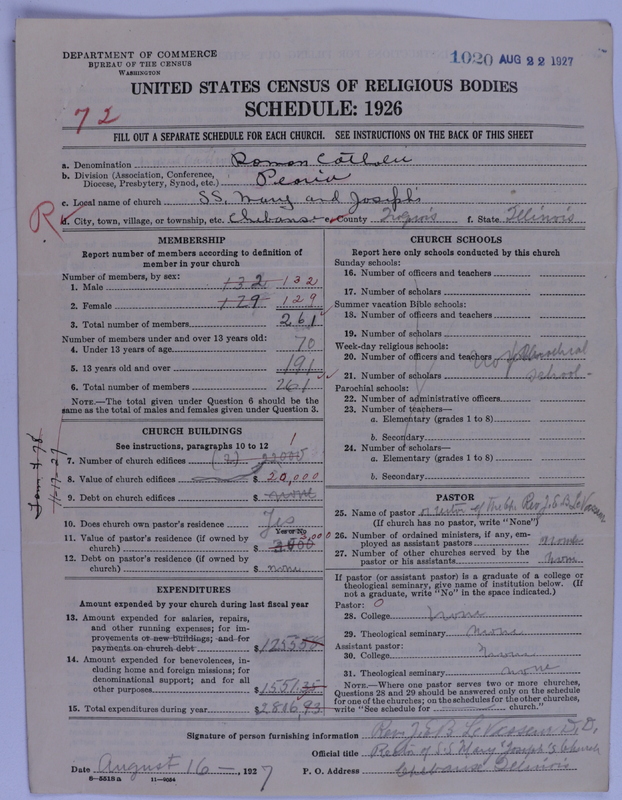 DEPARTMENT OF COMMERCE
BUREAU OF THE CENSUS
WASHINGTON
1020 AUG 22 1927
UNITED STATES CENSUS OF RELIGIOUS BODIES
SCHEDULE: 1926
72
FILL OUT A SEPARATE SCHEDULE FOR EACH CHURCH. SEE INSTRUCTIONS ON THE BACK OF THIS SHEET
a. Denomination Roman
b. Division (Association, Conference, Diocese, Presbytery, Synod, etc.) Peoria
c. Local name of church SS. Mary and Joseph's
R
d. City, town, village, or township, etc. Chebanse e. County f. State Illinois
MEMBERSHIP
Report number of members according to definition of member in your church
Number of members, by sex:
1. Male 132 132
2. Female 179 129
3. Total number of members 261
Number of members under and over 13 years old:
4. Under 13 years of age 70
5. 13 years old and over 191
6. Total number of members 261
NOTE.—The total given under Question 6 should be the same as the total of males and females given under Question 3.
CHURCH BUILDINGS
See instructions, paragraphs 10 to 12
7. Number of church edifices (2) 1
8. Value of church edifices $ 20,000
9. Debt on church edifices $ none
10. Does church own pastor's residence Yes
Yes or No
11. Value of pastor's residence (if owned by church) $ 3,000
12. Debt on pastor's residence (if owned by church) $ none
11-17-27
EXPENDITURES
Amount expended by your church during last fiscal year
13. Amount expended for salaries, repairs, and other running expenses; for improvements or new buildings; and for payments on church debt $
14. Amount expended for benevolences, including home and foreign missions; for denominational support; and for all other purposes $
15. Total expenditures during year $
CHURCH SCHOOLS
Report here only schools conducted by this church
Sunday schools:
16. Number of officers and teachers
17. Number of scholars
Summer vacation Bible schools:
18. Number of officers and teachers
19. Number of scholars
Week-day religious schools:
20. Number of officers and teachers no parochial
21. Number of scholars school
Parochial schools:
22. Number of administrative officers
23. Number of teachers—
a. Elementary (grades 1 to 8)
b. Secondary
24. Number of scholars—
a. Elementary (grades 1 to 8)
b. Secondary
PASTOR
25. Name of pastor or rector of the ch. Rev J. B.
(If church has no pastor, write "None")
26. Number of ordained ministers, if any, employed as assistant pastors none
27. Number of other churches served by the pastor or his assistants none
If pastor (or assistant pastor) is a graduate of a college or theological seminary, give name of institution below. (If not a graduate, write "No" in the space indicated.)
Pastor:
28. College none
29. Theological seminary none
Assistant pastor:
30. College none
31. Theological seminary none
NOTE.—Where one pastor serves two or more churches, Questions 28 and 29 should be answered only on the schedule for one of the churches; on the schedules for the other churches, write "See schedule for church."
Signature of person furnishing information Rev. B. D.D.
Official title Rector of S.S. Mary Joseph's Church
Date August 16 —, 1927 P. O. Address Chebanse Illinois
6—5518a 11—9024